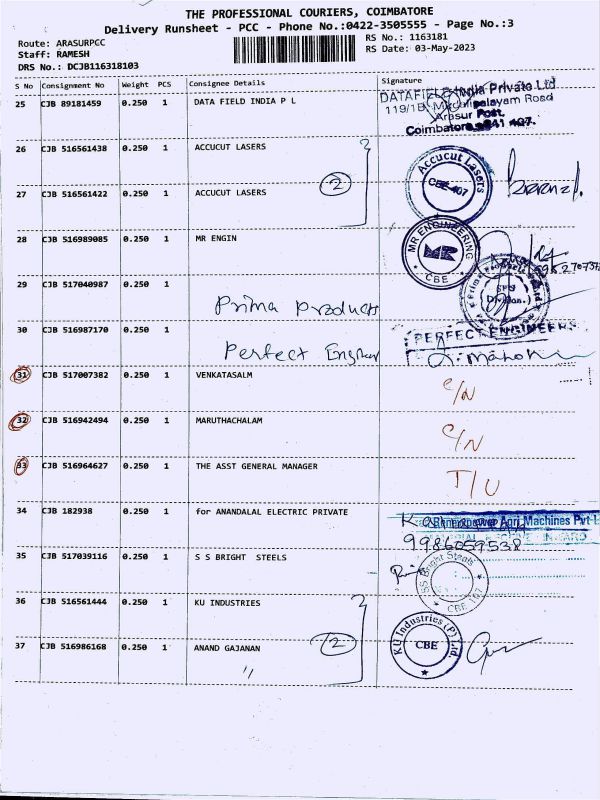 THE PROFESSIONAL COURIERS, COIMBATORE
Delivery Runsheet - PCC - Phone No.:0422-3505555 - Page No.:3
Route: ARASURPCC
Staff: RAMESH
DRS No.: DCJB116318103
RS No.: 1163181
RS Date: 03-May-2023
S No Consignment No Weight PCS Consignee Details Signature
25 CJB 89181459 0.250 1 DATA FIELD INDIA P L
DATAFIELD India Private Ltd
119/1B, Muthugoundenpalayam Road
Arasur Post,
Coimbatore - 641 407.
26 CJB 516561438 0.250 1 ACCUCUT LASERS
27 CJB 516561422 0.250 1 ACCUCUT LASERS
2
Accucut Lasers
CBE-407
28 CJB 516989085 0.250 1 MR ENGIN
MR ENGINEERING
CBE
29 CJB 517040987 0.250 1 Prima Products
30 CJB 516987170 0.250 1 Perfect Engineer
PERFECT ENGINEERS
31 CJB 517007382 0.250 1 VENKATASALM C/N
32 CJB 516942494 0.250 1 MARUTHACHALAM C/N
33 CJB 516964627 0.250 1 THE ASST GENERAL MANAGER T/U
34 CJB 182938 0.250 1 for ANANDALAL ELECTRIC PRIVATE
Agri Machines Pvt L
9986059538
35 CJB 517039116 0.250 1 S S BRIGHT STEELS
SS Bright Steels
CBE
36 CJB 516561444 0.250 1 KU INDUSTRIES
37 CJB 516986168 0.250 1 ANAND GAJANAN
〃
2
KU Industries (P) Ltd.
CBE